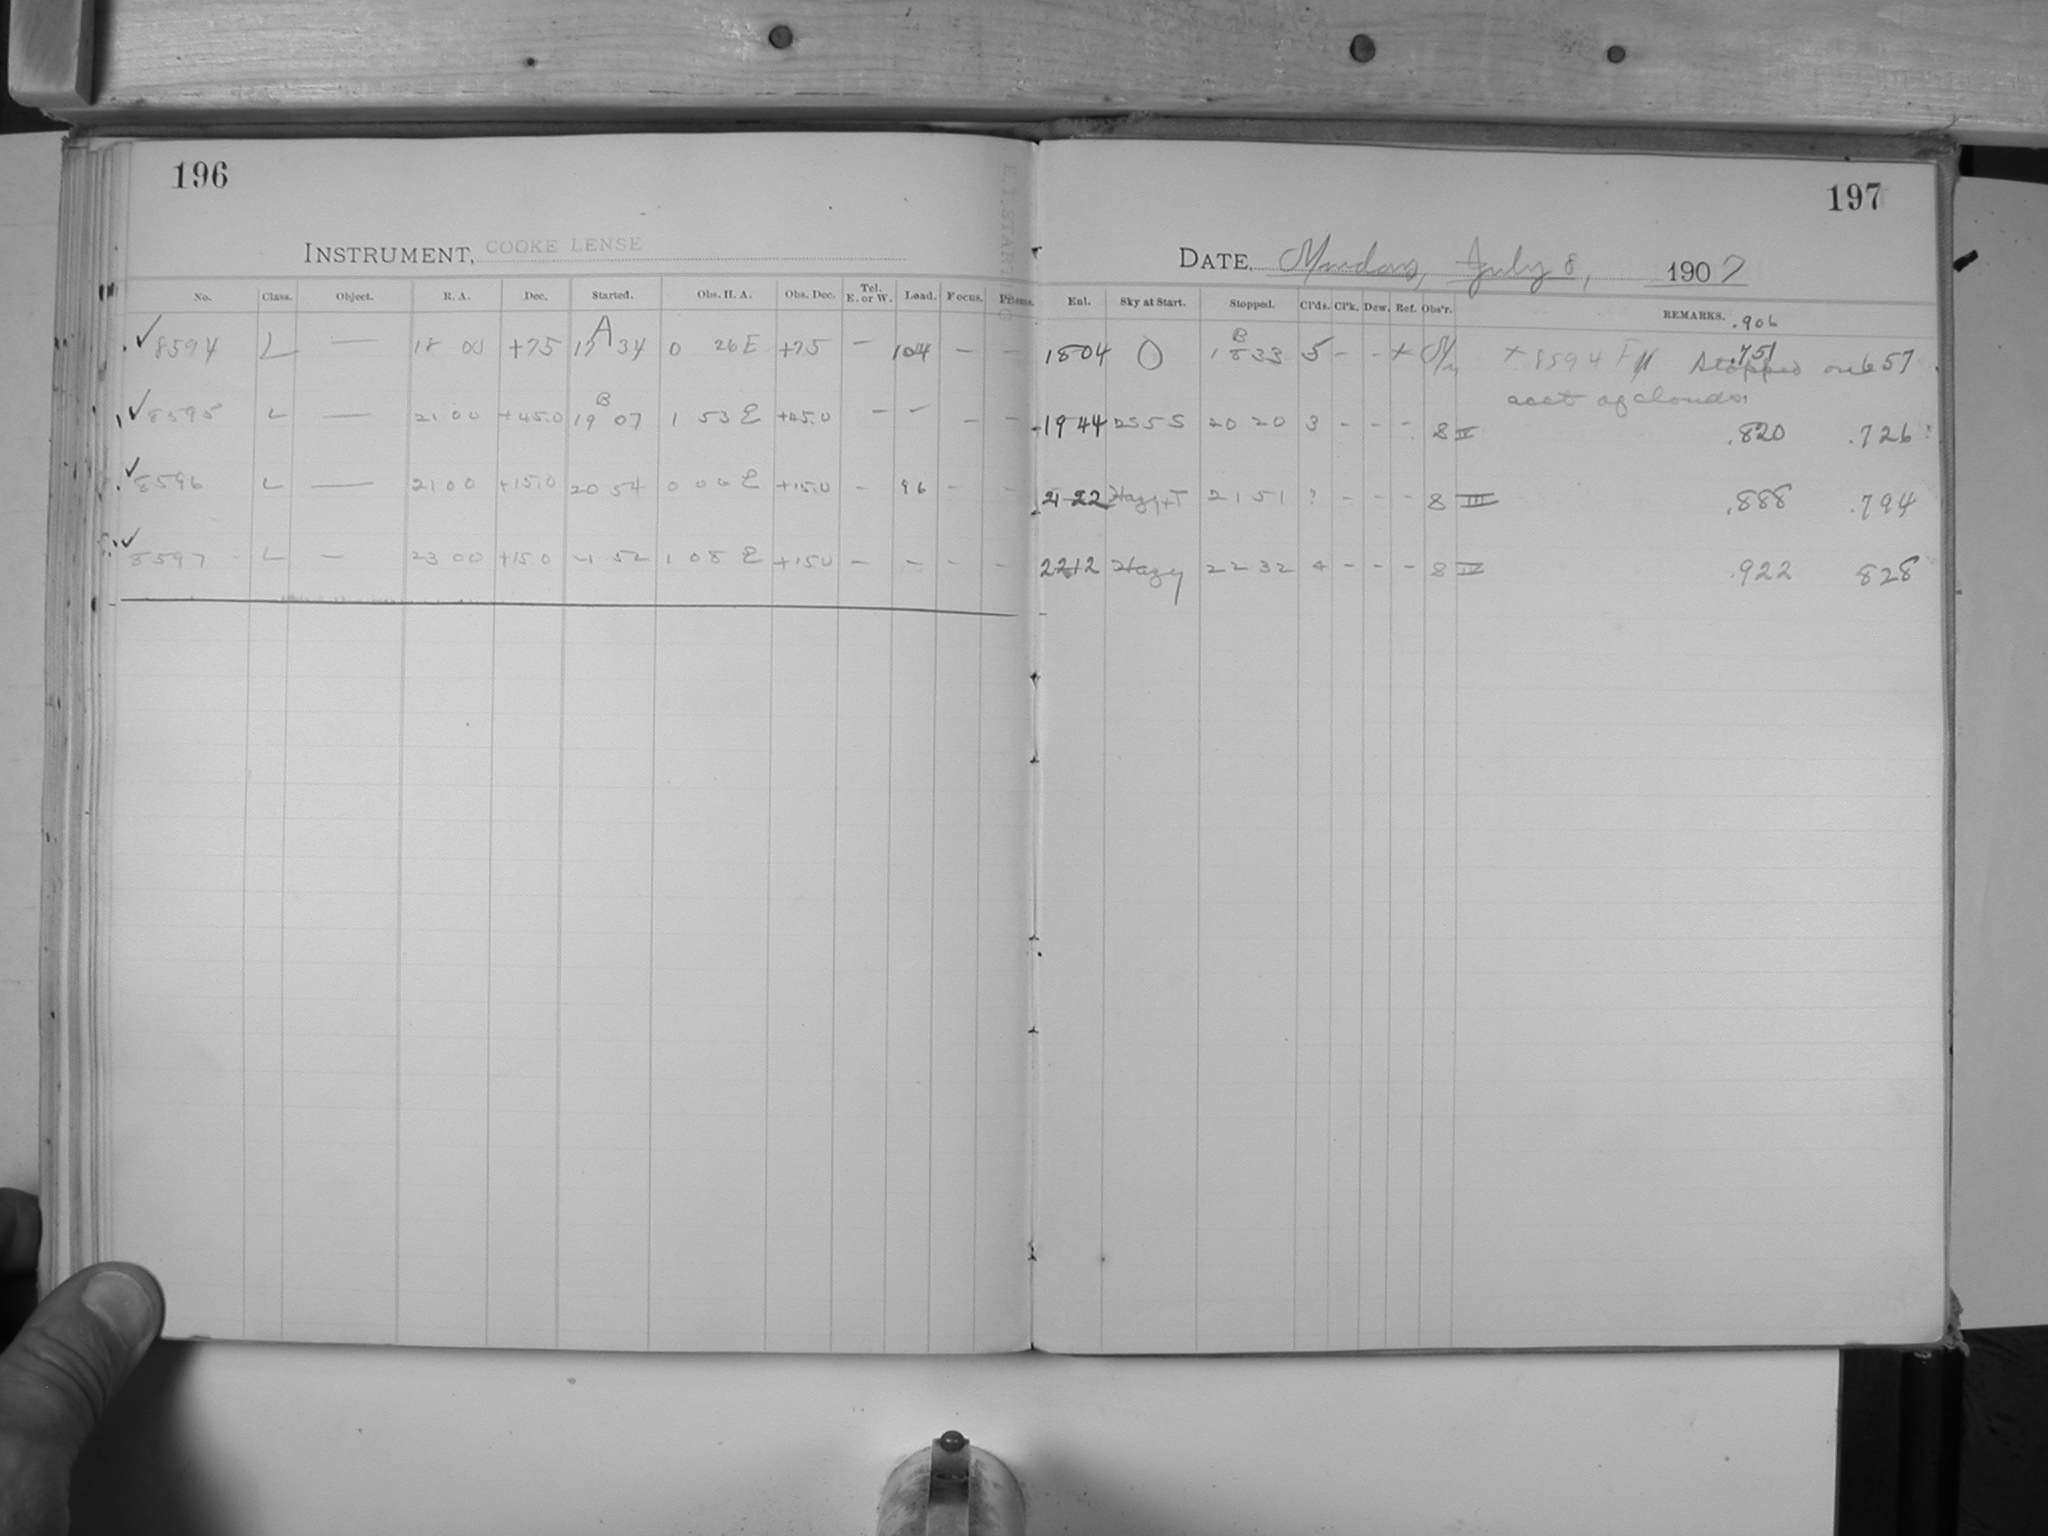 196
INSTRUMENT, COOKE LENSE
No. Class. Object. R. A. Dec. Started. Obs. H. A. Obs. Dec. Tel. E. or W. Load. Focus. Prisms.
A
✓ 8594 L — 18 00 +75 17 34 0 26 E +75 — 104 — —
B
✓ 8595 L — 21 00 +45.0 19 07 1 53 E +45.0 — — — —
✓ 8596 L — 21 00 +15.0 20 54 0 06 E +15.0 — 96 — —
✓ 8597 L — 23 00 +15.0 21 52 1 08 E +15.0 — — — —
E.T. START
197
DATE, Monday, July 8, 1907
Enl. Sky at Start. Stopped. Cl'ds. Cl'k. Dew. Ref. Obs'r. REMARKS.
.906
B
1804 0 18 33 5 - - + + 8594 Stopped on .751 657
acct of clouds.
1944 2S5S 20 20 3 - - - 8 II .820 .726
21 22 Hazy 21 51 ? - - - 8 III .888 .794
2212 Hazy 22 32 4 - - - 8 IV .922 828